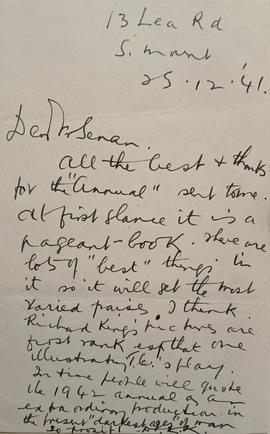 13 Lea Rd
S. mount
25.12.'41.
Dear Fr Senan.
All the best & thanks
for the "Annual" sent to me.
At first glance it is a
pageant-book. There are
lots of "best" things in
it so it will get the most
varied praise, I think.
Richard King's pictures are
first rank esp that one
illustrating T.C.'s play.
In time people will quote
the 1942 annual as an
extraordinary production in
the present "darkest ages of" man